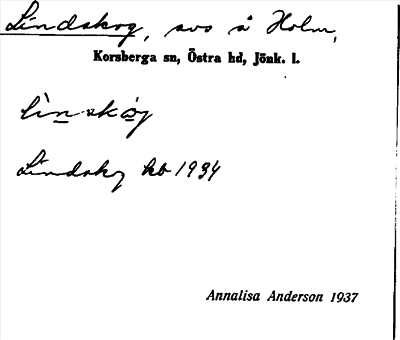 Lindskog, avs å Holm,
Korsberga sn, Östra hd, Jönk. l.
lìn skóg
Lindskog kb 1934
Annalisa Anderson 1937